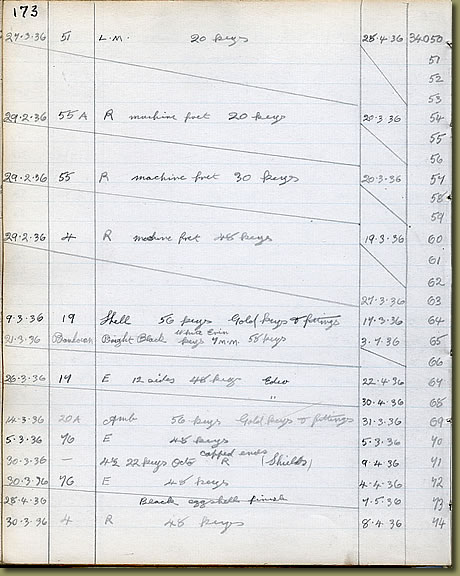 173
27.3.36 51 L.M. 20 keys 25.4.36 34050
51
52
53
29.2.36 55A R machine fret 20 keys 20.3.36 54
55
56
29.2.36 55 R machine fret 30 keys 20.3.36 57
58
59
29.2.36 4 R machine fret 48 keys 19.3.36 60
61
62
27.3.36 63
9.3.36 19 Shell 56 keys Gold keys & fittings 17.3.36 64
White Erin
21.3.36 Bright Black keys 7 m.m. 58 keys 3.7.36 65
66
26.3.36 19 E 12 sides 48 keys Edeo 22.4.36 67
" 30.4.36 68
14.3.36 20A Amb 56 keys Gold keys & fittings 31.3.36 69
5.3.36 76 E 48 keys 5.3.36 70
capped ends
30.3.36 — 4½ 22 keys Octo R (Shields) 9.4.36 71
30.3.36 76 E 48 keys 4.4.36 72
25.4.36 Black eggshell finish 7.5.36 73
30.3.36 4 R 48 keys 8.4.36 74